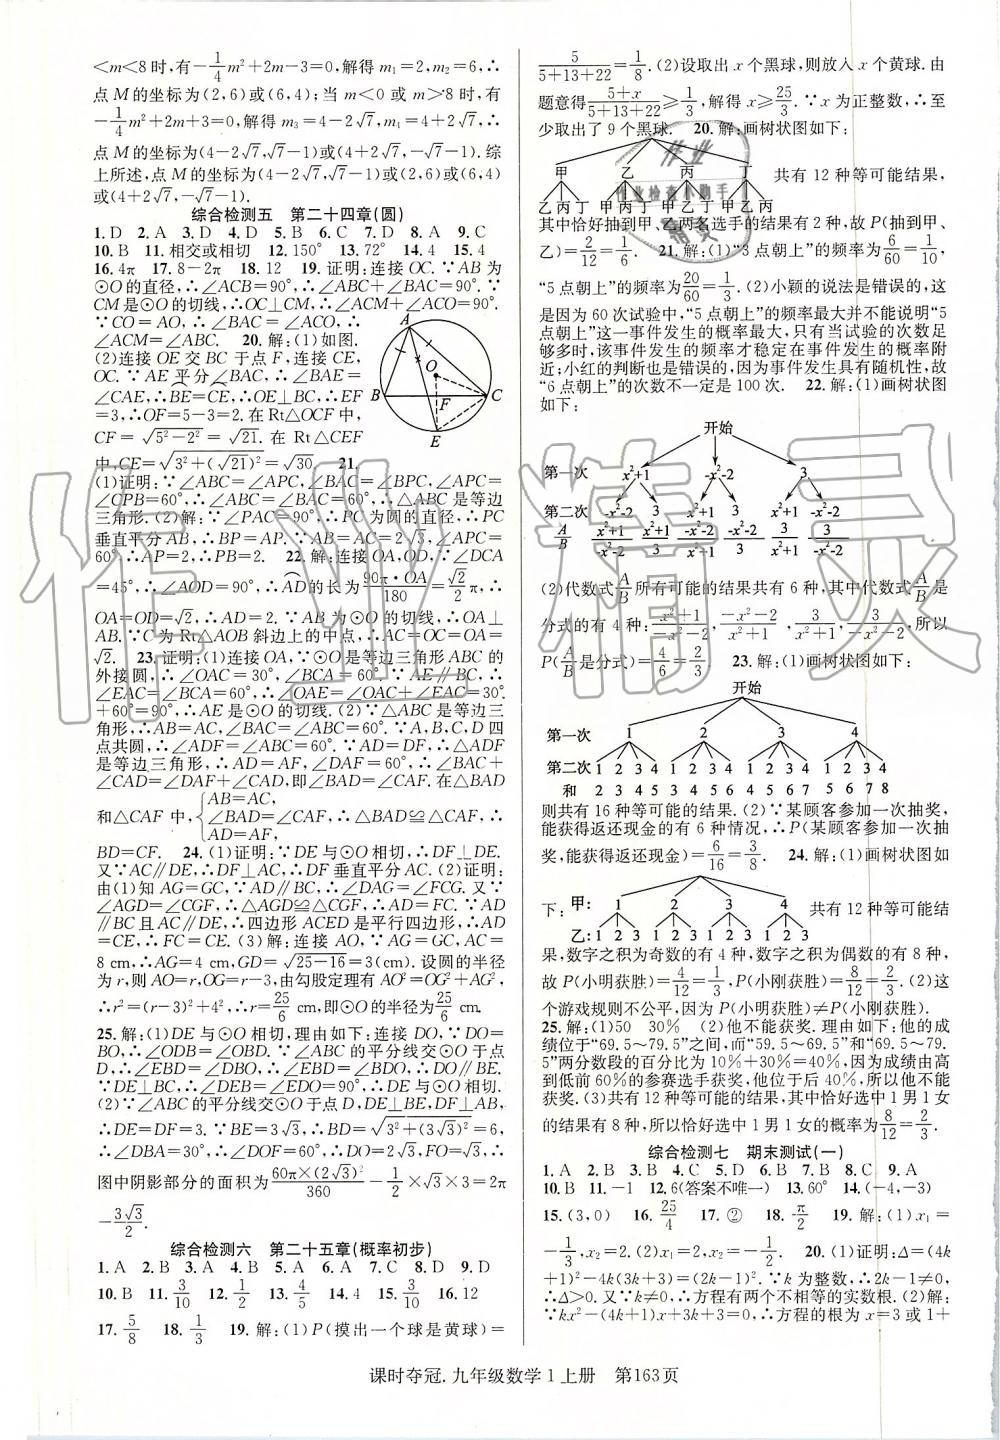 <m<8时,有-1/4m²+2m-3=0,解得m₁=2,m₂=6,∴
点M的坐标为(2,6)或(6,4);当m<0或m>8时,有
-1/4m²+2m+3=0,解得m₃=4-2√7,m₄=4+2√7,∴
点M的坐标为(4-2√7,√7-1)或(4+2√7,-√7-1).综
上所述,点M的坐标为(4-2√7,√7-1)或(2,6)或(6,4)或
(4+2√7,-√7-1).
综合检测五 第二十四章(圆)
1.D 2.A 3.D 4.D 5.B 6.C 7.D 8.A 9.C
10.B 11.相交或相切 12.150° 13.72° 14.4 15.4
16.4π 17.8-2π 18.12 19.证明:连接OC.∵AB为
⊙O的直径,∴∠ACB=90°,∴∠ABC+∠BAC=90°.∵
CM是⊙O的切线,∴OC⊥CM,∴∠ACM+∠ACO=90°.
∵CO=AO,∴∠BAC=∠ACO,∴
∠ACM=∠ABC. 20.解:(1)如图.
(2)连接OE交BC于点F,连接CE,
OC.∵AE平分∠BAC,∴∠BAE=
∠CAE,∴BE=CE,∴OE⊥BC,∴EF
=3,∴OF=5-3=2.在Rt△OCF中,
CF=√5²-2²=√21.在Rt△CEF
中,CE=√3²+(√21)²=√30. 21.
A
B
O
F
C
E
(1)证明:∵∠ABC=∠APC,∠BAC=∠BPC,∠APC=
∠CPB=60°,∴∠ABC=∠BAC=60°,∴△ABC是等边
三角形.(2)解:∵∠PAC=90°,∴PC为圆的直径,∴PC
垂直平分AB,∴BP=AP.∵AB=AC=2√3,∠APC=
60°,∴AP=2,∴PB=2. 22.解:连接OA,OD,∵∠DCA
=45°,∴∠AOD=90°,∴AD的长为90π·OA/180=√2/2π,∴
OA=OD=√2,∴AD=2.∵AB为⊙O的切线,∴OA⊥
AB.∵C为Rt△AOB斜边上的中点,∴AC=OC=OA=
√2. 23.证明:(1)连接OA,∵⊙O是等边三角形ABC的
外接圆,∴∠OAC=30°,∠BCA=60°.∵AE∥BC,∴
∠EAC=∠BCA=60°,∴∠OAE=∠OAC+∠EAC=30°
+60°=90°,∴AE是⊙O的切线.(2)∵△ABC是等边三
角形,∴AB=AC,∠BAC=∠ABC=60°.∵A,B,C,D四
点共圆,∴∠ADF=∠ABC=60°.∵AD=DF,∴△ADF
是等边三角形,∴AD=AF,∠DAF=60°,∴∠BAC+
∠CAD=∠DAF+∠CAD,即∠BAD=∠CAF.在△BAD
和△CAF中,{AB=AC, ∠BAD=∠CAF, AD=AF, ∴△BAD≌△CAF,∴
BD=CF. 24.(1)证明:∵DE与⊙O相切,∴DF⊥DE.
又∵AC∥DE,∴DF⊥AC,∴DF垂直平分AC.(2)证明:
由(1)知AG=GC,∵AD∥BC,∴∠DAG=∠FCG.又∵
∠AGD=∠CGF,∴△AGD≌△CGF,∴AD=FC.∵AD
∥BC且AC∥DE,∴四边形ACED是平行四边形,∴AD
=CE,∴FC=CE.(3)解:连接AO,∵AG=GC,AC=
8 cm,∴AG=4 cm,GD=√25-16=3(cm).设圆的半径
为r,则AO=r,OG=r-3,由勾股定理有AO²=OG²+AG²,
∴r²=(r-3)²+4²,∴r=25/6 cm,即⊙O的半径为25/6 cm.
25.解:(1)DE与⊙O相切,理由如下:连接DO,∵DO=
BO,∴∠ODB=∠OBD.∵∠ABC的平分线交⊙O于点
D,∴∠EBD=∠DBO,∴∠EBD=∠BDO,∴DO∥BE.
∵DE⊥BC,∴∠DEB=∠EDO=90°,∴DE与⊙O相切.
(2)∵∠ABC的平分线交⊙O于点D,DE⊥BE,DF⊥AB,
∴DE=DF=3.∵BE=3√3,∴BD=√3²+(3√3)²=6,
∴∠DBA=30°,∴∠DOF=60°,∴OD=2√3,OF=√3,∴
图中阴影部分的面积为60π×(2√3)²/360-1/2×√3×3=2π
-3√3/2.
综合检测六 第二十五章(概率初步)
1.A 2.B 3.A 4.B 5.A 6.A 7.C 8.D 9.D
10.B 11.3/10 12.1/2 13.4/5 14.4 15.3/10 16.12
17.5/8 18.1/3 19.解:(1)P(摸出一个球是黄球)=
5/(5+13+22)=1/8.(2)设取出x个黑球,则放入x个黄球.由
题意得(5+x)/(5+13+22)≥1/3,解得x≥25/3.∵x为正整数,∴至
少取出了9个黑球. 20.解:画树状图如下:
甲 乙 丙 丁 共有12种等可能结果,
乙丙丁 甲丙丁 甲乙丁 甲乙丙
其中恰好抽到甲、乙两名选手的结果有2种,故P(抽到甲、
乙)=2/12=1/6. 21.解:(1)“3点朝上”的频率为6/60=1/10,
“5点朝上”的频率为20/60=1/3.(2)小颖的说法是错误的,这
是因为60次试验中,“5点朝上”的频率最大并不能说明“5
点朝上”这一事件发生的概率最大,只有当试验的次数足
够多时,该事件发生的频率才稳定在事件发生的概率附
近;小红的判断也是错误的,因为事件发生具有随机性,故
“6点朝上”的次数不一定是100次. 22.解:(1)画树状图
如下:
开始
第一次 x²+1 -x²-2 3
第二次 -x²-2 3 x²+1 3 x²+1 -x²-2
A/B (x²+1)/(-x²-2) (x²+1)/3 (-x²-2)/(x²+1) (-x²-2)/3 3/(x²+1) 3/(-x²-2)
(2)代数式A/B所有可能的结果共有6种,其中代数式A/B是
分式的有4种:(x²+1)/(-x²-2),(-x²-2)/(x²+1),3/(x²+1),3/(-x²-2),所以
P(A/B是分式)=4/6=2/3. 23.解:(1)画树状图如下:
开始
第一次 1 2 3 4
第二次 1 2 3 4 1 2 3 4 1 2 3 4 1 2 3 4
和 2 3 4 5 3 4 5 6 4 5 6 7 5 6 7 8
则共有16种等可能的结果.(2)∵某顾客参加一次抽奖,
能获得返还现金的有6种情况,∴P(某顾客参加一次抽奖,
能获得返还现金)=6/16=3/8. 24.解:(1)画树状图如
下: 甲: 1 2 3 4 共有12种等可能结
乙:1 2 3 1 2 3 1 2 3 1 2 3
果,数字之积为奇数的有4种,数字之积为偶数的有8种,
故P(小明获胜)=4/12=1/3,P(小刚获胜)=8/12=2/3.(2)这
个游戏规则不公平,因为P(小明获胜)≠P(小刚获胜).
25.解:(1)50 30% (2)他不能获奖.理由如下:他的成
绩位于“69.5~79.5”之间,而“59.5~69.5”和“69.5~79.
5”两分数段的百分比为10%+30%=40%,因为成绩由高
到低前60%的参赛选手获奖,他位于后40%,所以他不能
获奖.(3)共有12种等可能的结果,其中恰好选中1男1女
的结果有8种,所以P(恰好选中1男1女)=8/12=2/3.
综合检测七 期末测试(一)
1.A 2.B 3.B 4.C 5.D 6.B 7.B 8.C 9.A
10.B 11.-1 12.6(答案不唯一) 13.60° 14.(-4,-3)
15.(3,0) 16.25/4 17.② 18.π/2 19.解:(1)x₁=
-1/3,x₂=2.(2)x₁=2,x₂=-1/2. 20.(1)证明:Δ=(4k
+1)²-4k(3k+3)=(2k-1)².∵k为整数,∴2k-1≠0,
∴Δ>0.又∵k≠0,∴方程有两个不相等的实数根.(2)解:
∵kx²-(4k+1)x+3k+3=0,∴方程的根为x=3或1+
课时夺冠.九年级数学1上册 第163页
作业精灵
作业
作业检查小助手
精灵